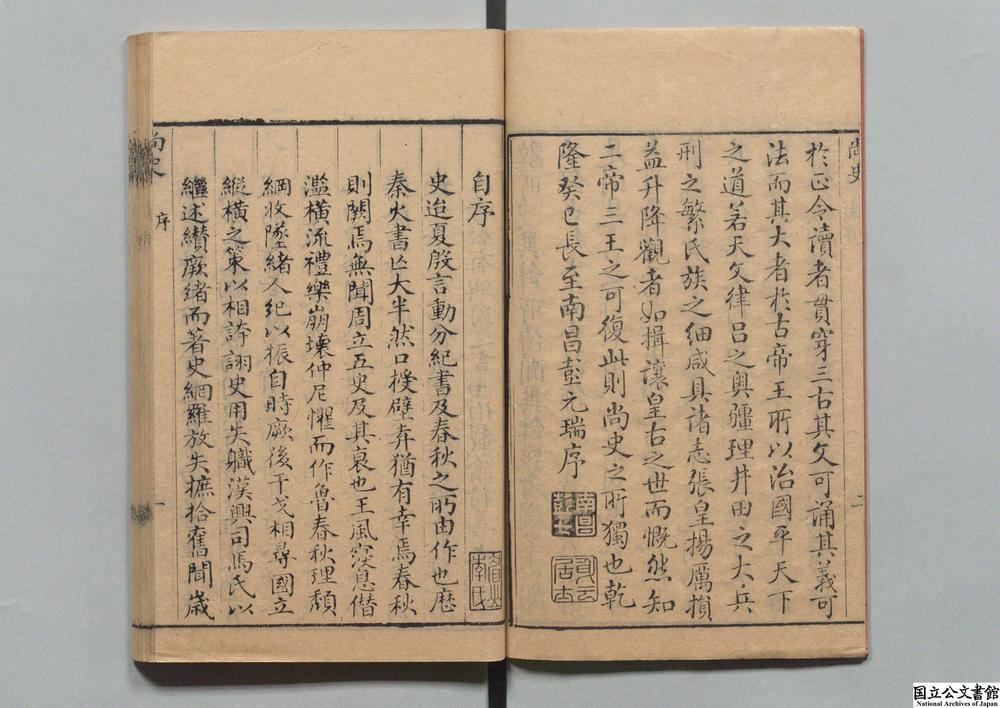 尚史
二
於正令讀者貫穿三古其文可誦其義可
法而其大者於古帝王所以治國平天下
之道若天文律呂之奧疆理井田之大兵
刑之繁氏族之細咸具諸志張皇揚厲損
益升降觀者如揖讓皇古之世而慨然知
二帝三王之可復此則尚史之所獨也乾
隆癸巳長至南昌彭元瑞序
南昌
自序
史迨夏殷言動分紀書及春秋之所由作也歷
秦火書亡大半然口授壁弆猶有幸焉春秋
則闕焉無聞周立五史及其衰也王風寖息僭
濫橫流禮樂崩壞仲尼懼而作魯春秋理頹
綱收墜緒人紀以振自時厥後干戈相尋國立
縱橫之策以相誇詡史用失職漢興司馬氏以
繼述纘厥緒而著史網羅放失摭拾舊聞歲
尚史
序
一
国立公文書館
National Archives of Japan